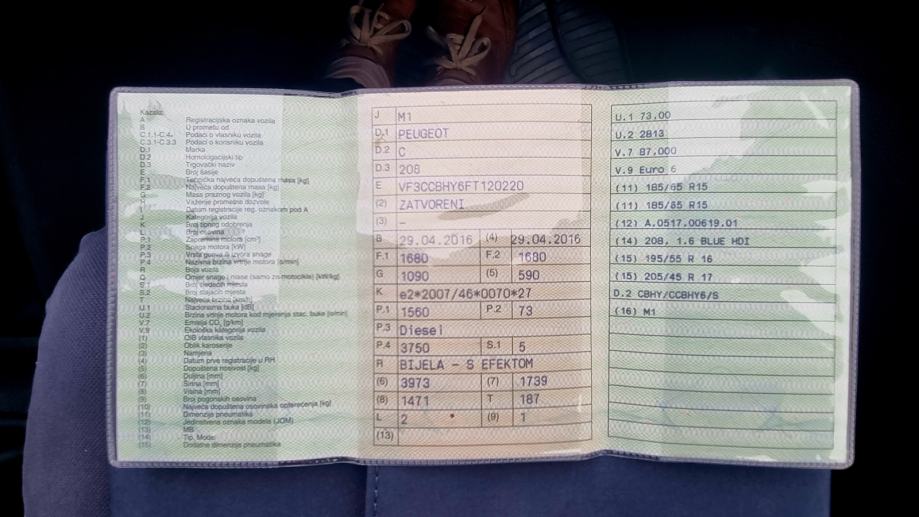 Kazalo:
A Registracijska oznaka vozila
B U prometu od
C.1.1-C.4- Podaci o vlasniku vozila
C.3.1-C.3.3 Podaci o korisniku vozila
D.1 Marka
D.2 Homologacijski tip
D.3 Trgovački naziv
E Broj šasije
F.1 Tehnička najveća dopuštena masa [kg]
F.2 Najveća dopuštena masa [kg]
G Masa praznog vozila [kg]
Važenje prometne dozvole
Datum registracije reg. oznakom pod A
J Kategorija vozila
K Broj tipnog odobrenja
L Broj osovina
P.1 Zapremina motora [cm³]
P.2 Snaga motora [kW]
P.3 Vrsta goriva ili izvora snage
P.4 Nazivna brzina vrtnje motora [o/min]
R Boja vozila
Q Omjer snage i mase (samo za motocikle) [kW/kg]
S.1 Broj sjedećih mjesta
S.2 Broj stajaćih mjesta
T Najveća brzina [km/h]
U.1 Stacionarna buka [dB]
U.2 Brzina vrtnje motora kod mjerenja stac. buke [o/min]
V.7 Emisija CO₂ [g/km]
V.9 Ekološka kategorija vozila
(1) OIB vlasnika vozila
(2) Oblik karoserije
(3) Namjena
(4) Datum prve registracije u RH
(5) Dopuštena nosivost [kg]
(6) Duljina [mm]
(7) Širina [mm]
(8) Visina [mm]
(9) Broj pogonskih osovina
(10) Najveća dopuštena osovinska opterećenja [kg]
(11) Dimenzije pneumatika
(12) Jedinstvena oznaka modela (JOM)
(13) MB
(14) Tip, Model
(15) Dodatne dimenzije pneumatika
J M1
D.1 PEUGEOT
D.2 C
D.3 208
E VF3CCBHY6FT120220
(2) ZATVORENI
(3) –
B 29.04.2016 (4) 29.04.2016
F.1 1680 F.2 1680
G 1090 (5) 590
K e2*2007/46*0070*27
P.1 1560 P.2 73
P.3 Diesel
P.4 3750 S.1 5
R BIJELA - S EFEKTOM
(6) 3973 (7) 1739
(8) 1471 T 187
L 2 (9) 1
(13)
U.1 73,00
U.2 2813
V.7 87,000
V.9 Euro 6
(11) 185/65 R15
(11) 185/65 R15
(12) A.0517.00619.01
(14) 208, 1.6 BLUE HDI
(15) 195/55 R 16
(15) 205/45 R 17
D.2 CBHY/CCBHY6/S
(16) M1